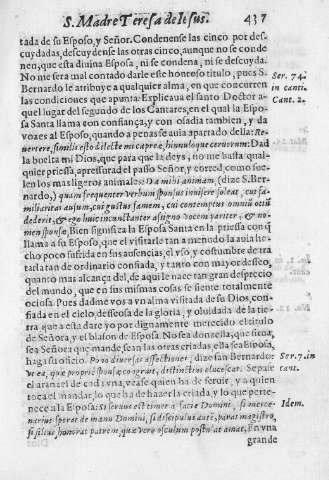 S. Madre Teresa de Iesus. 437
tada de su Esposo, y Señor. Condenense las cinco por des-
cuydadas, descuydense las otras cinco, aunque no se conde
nen, que esta diuina Esposa, ni se condena, ni se descuyda.
No me sera mal contado darle este honroso titulo, pues S.
Bernardo le atribuye a qualquier alma, en que concurren
las condiciones que apunta: Explicaua el santo Doctor a-
quel lugar del segundo de los Cantares, en el qual la Espo-
sa Santa llama con confiança, y con osadia tambien, y da
vozes al Esposo, quando a penas se auia apartado della: Re-
uertere, similis esto dilecte mi capreæ, hinnuloque ceruorum: Dad
la buelta mi Dios, que para que la deys, no me basta qual-
quier priessa, apressurad el passo Señor, y corred, como sue-
len los mas ligeros animales: Da mihi animam, (dize S. Ber-
nardo,) quam frequenter verbum sponsus inuisere soleat, cui fa-
miliaritas ausum, cui gustus famem, cui contemptus omniũ otiũ
dederit, & ego huic incunctanter assigno vocem pariter, & no-
men sponsæ, Bien significa la Esposa Santa en la priessa con q̃
llama a su Esposo, que el visitarle tan a menudo la auia he-
cho poco sufrida en sus ausencias, el vso, y costumbre de tra
tarla tan de ordinario confiada, y tanto con mayor desseo,
quanto mas alcança del, de aqui le nace tan gran desprecio
del mundo, que en sus mismas cosas se siente totalmente
ociosa. Pues dadme vos a vn alma visitada de su Dios, con-
fiada en el cielo, desseosa de la gloria, y oluidada de la tie
rra, que a esta dare yo por dignamente merecido el titulo
de Señora, y el blason de Esposa. No sea donzella, que sierua,
sea Señora que mande, sean las otras criadas, ella sea Esposa,
haga su oficio. Pono diuersas affectiones, dize san Bernardo:
vt ea, quæ propriè sponsæ congruit, distinctius elucescat. Sepase
el aranzel de cada vna, vease quien ha de seruir, y a quien
toca el mandar, lo que ha de hazer la criada, y lo que perte-
nece a la Esposa: Si seruus est timet a facie Domini, si merce-
narius sperat de manu Domini, si discipulus aurẽ parat magistro,
si filius honorat patrem, quæ verò osculum postulat amat. En vna
grande
Ser. 74.
in canti.
Cant. 2.
Ser. 7. in
cant.
Idem.